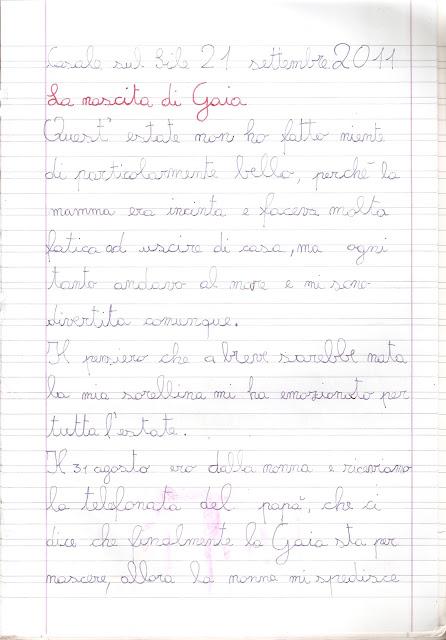 Casale sul Sile 21 settembre 2011
La nascita di Gaia
Quest' estate non ho fatto niente
di particolarmente bello, perché la
mamma era incinta e faceva molta
fatica ad uscire di casa, ma ogni
tanto andavo al mare e mi sono
divertita comunque.
Il pensiero che a breve sarebbe nata
la mia sorellina mi ha emozionato per
tutta l'estate.
Il 31 agosto ero dalla nonna e riceviamo
la telefonata del papà, che ci
dice che finalmente la Gaia sta per
nascere, allora la nonna mi spedisce